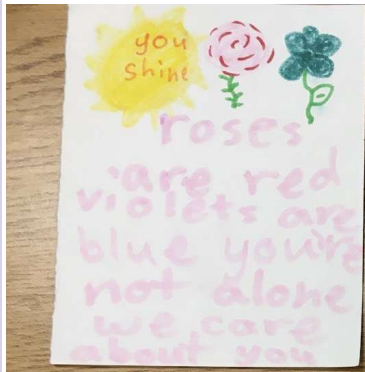 you
shine
roses
are red
violets are
blue you're
not alone
we care
about you